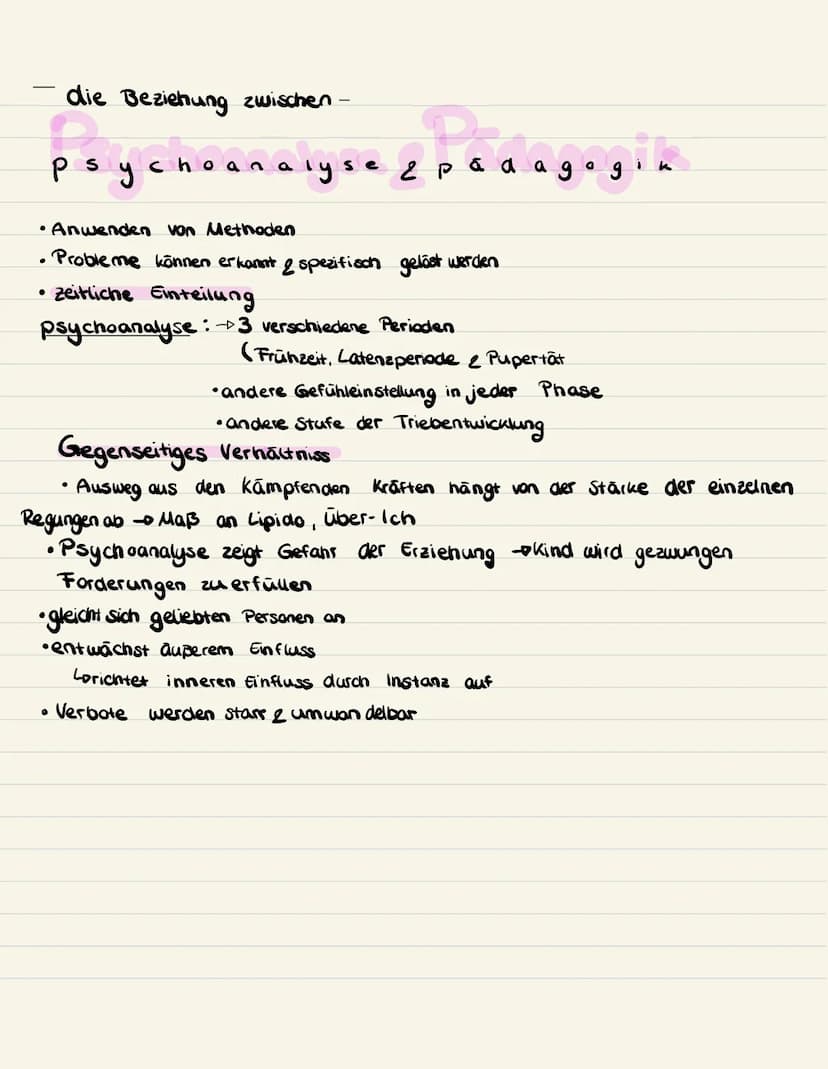 — die Beziehung zwischen –
Psychoanalyse & Pädagogik
psychoanalyse & pädagogik
• Anwenden von Methoden
• Probleme können erkannt & spezifisch gelöst werden
• zeitliche Einteilung
psychoanalyse: → 3 verschiedene Perioden
(Frühzeit, Latenzperiode & Pupertät
• andere Gefühleinstellung in jeder Phase
• andere Stufe der Triebentwicklung
Gegenseitiges Verhältniss
• Ausweg aus den kämpfenden Kräften hängt von der Stärke der einzelnen
Regungen ab → Maß an Lipido, Über-Ich
• Psychoanalyse zeigt Gefahr der Erziehung → Kind wird gezwungen
Forderungen zu erfüllen
• gleicht sich geliebten Personen an
• entwächst äußerem Einfluss
↳ richtet inneren Einfluss durch Instanz auf
• Verbote werden starr & umwandelbar